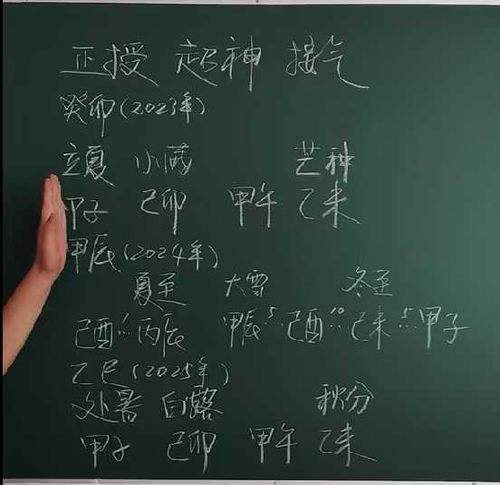 正授 超神 接气
癸卯(2023年)
立夏 小满 芒种
甲子 己卯 甲午 乙未
甲辰(2024年)
夏至 大雪 冬至
己酉 11 丙辰 甲辰 5 己酉 10 己未 5 甲子
乙巳(2025年)
处暑 白露 秋分
甲子 己卯 甲午 乙未